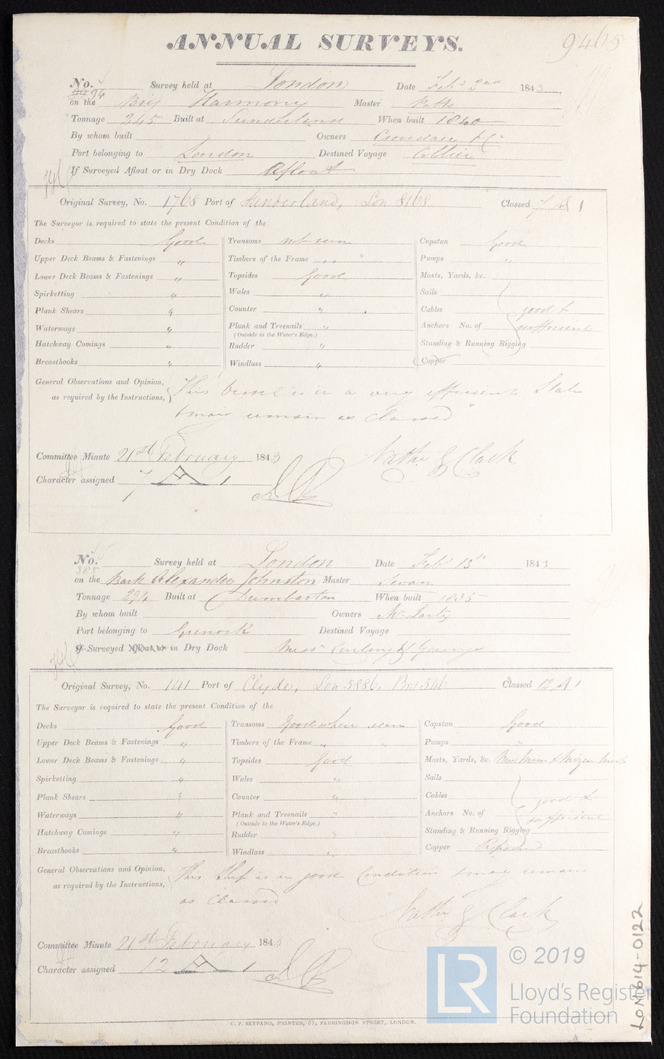 ANNUAL SURVEYS. 9465
No. 94 Survey held at London Date Feb 1843
on the Brig Harmony Master
Tonnage 245 Built at Sunderland When built 1840
By whom built Owners &c
Port belonging to London Destined Voyage Collier
If Surveyed Afloat or in Dry Dock Afloat
Original Survey, No. 1768 Port of Sunderland, Lon 8168 Classed A 1
The Surveyor is required to state the present Condition of the
Decks Good Transoms not seen Capstan Good
Upper Deck Beams & Fastenings " Timbers of the Frame " " Pumps "
Lower Deck Beams & Fastenings " Topsides Good Masts, Yards, &c.
Spirketting " Wales " Sails
Plank Shears " Counter " Cables good &
Waterways " Plank and Treenails " Anchors No. of sufficient
(Outside to the Water's Edge.)
Hatchway Comings " Rudder " Standing & Running Rigging
Breasthooks " Windlass " Copper
General Observations and Opinion, This vessel is in a very efficient State
as required by the Instructions, & may remain as Classed
Committee Minute 21st February 1843 Nathl G Clark
Character assigned A 1
1
No. 385 Survey held at London Date Feb 13th 1843
on the Bark Alexander Johnston Master
Tonnage 294 Built at Dumbarton When built 1835
By whom built Owners
Port belonging to Greenock Destined Voyage
Surveyed Afloat or in Dry Dock Messrs
Original Survey, No. 141 Port of Clyde, Lon 5886, 546 Classed 12 A 1
The Surveyor is required to state the present Condition of the
Decks Good Transoms Good where seen Capstan Good
Upper Deck Beams & Fastenings " Timbers of the Frame " " Pumps "
Lower Deck Beams & Fastenings " Topsides Good Masts, Yards, &c. New Main & Mizen Masts
Spirketting " Wales " Sails
Plank Shears " Counter " Cables good &
Waterways " Plank and Treenails " Anchors No. of sufficient
(Outside to the Water's Edge.)
Hatchway Comings " Rudder " Standing & Running Rigging
Breasthooks " Windlass " Copper Repaired
General Observations and Opinion, This Ship is in good Condition & may remain
as required by the Instructions, as Classed
Nathl G Clark
Committee Minute 21st February 1843
Character assigned 12 A 1
C. F. SEYFANG, PRINTER, 57, FARRINGDON STREET, LONDON.
LR © 2019
Lloyd's Register
Foundation
LON614-0122